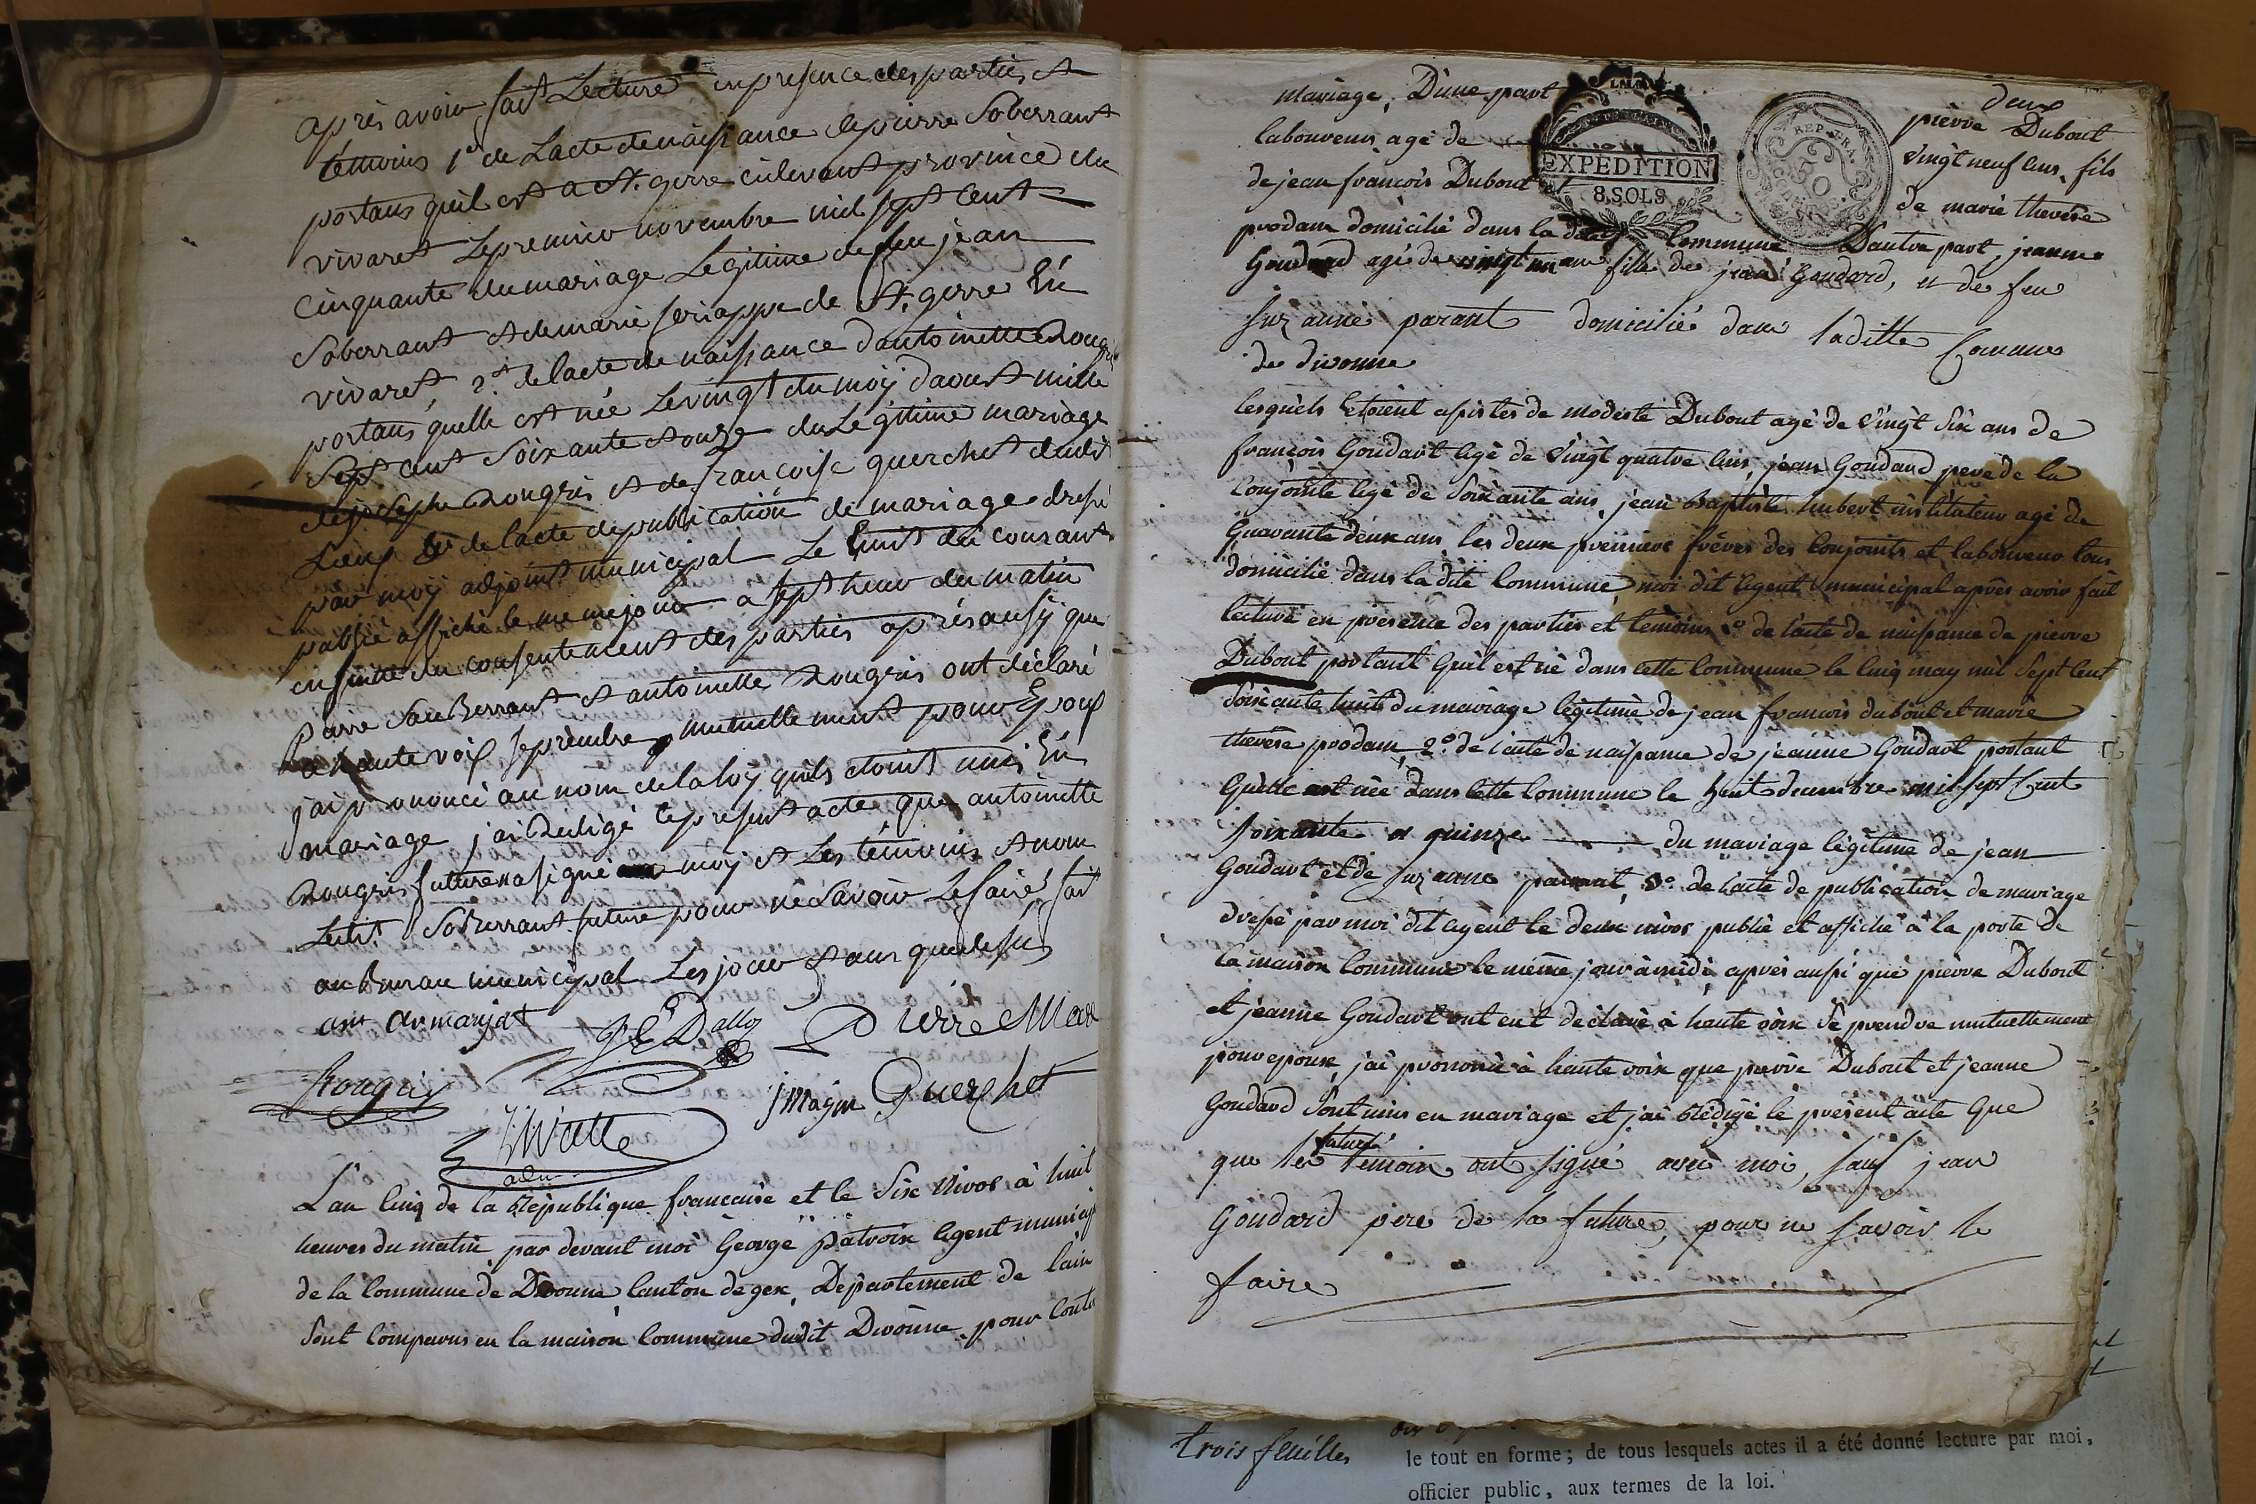 après avoir fait Lecture en presence des parties et
témoins 1º de Lacte de naissance de pierre Soberrant
portant quil est a St. gerre cidevant province du
vivaret Le premier novembre mil sept cent
cinquante du mariage Legitime de feu jean
Soberrant et de marie de St. gerre En
vivaret, 2º de lacte de naissance dantoinette Rougris
portans quelle est née Le vingt du moÿ daoust mille
Sept cent Soixante et onze du Légitime mariage
de joseph Rougris et de francoise querchet dudit
Lieux de lacte de publication de mariage dressé
par moÿ adjoint municipal Le huit du courant
publié affiché le meme jour a sept heur du matin
ensuitte du consentement des parties après ausy que
Pierre Sauberrant et antoinette Rougris ont déclaré
a haute voix se prendre mutuellement pour Epoux
jai prononcé au nom de la loÿ quils étoint unis En
mariage jai Redigé le present acte que antoinette
Rougris future a signé moÿ et Les témoins et non
Ledit Soberrant futur pour ne Savoir Le faire, fait
au Bureau municipal Les jour et ans que dessus
ant armarjat J E Dalloz Pierre Mark
Rougris
jmagin Querchet
adm
L'an Cinq de la République francaise et le Six Nivos à huit
heures du matin par devant moi George Patroix Agent municip
de la Commune de Divonne Canton de gex, Département de l'ain
Sont Comparus en la maison Commune dudit Divonne, pour Contr
deux
mariage, D'une part pierre Dubout
LA LOI
REP. FRA.
50
EXPEDITION
8 SOLS
laboureur, agé de vingt neuf ans, fils
de jean francois Dubout et de marie therèse
prodam domicilié dans la dite Commune D'autre part, jeanne
Goudard agé de vingt un ans fille de jean Goudard, et de feu
Suzanne parant domicilié dans laditte Commune
de divonne
lesquels Etoient assistés de modeste Dubout agé de vingt Six ans de
françois Goudart Agé de vingt quatre ans, jean Goudard pere de la
Conjointe Agé de Soixante ans, jean Baptiste hubert instituteur agé de
Quarante deux ans, les deux premiers frères des Conjoints et laboureur tous
domicilié dans la dite Commune, moi dit Agent municipal après avoir fait
lecture en présence des parties et temoins 1º de l'acte de naissance de pierre
Dubout portant Qu'il est né dans cette Commune le Cinq may mil Sept Cent
Soixante huit du mariage légitime de jean francois dubout et marie
therèse prodam, 2º de l'acte de naissance de jeanne Goudart portant
Qu'elle est née dans cette Commune le huit decembre mil sept Cent
soixante et quinze du mariage légitime de jean
Goudart et de Suzanne parant, 3º de l'acte de publication de mariage
dressé par moi dit Agent le deux nivos publié et affiché à la porte de
la maison Commune le même jour à midi, après aussi que pierre Dubout
et jeanne Goudart ont eut déclaré à haute voix Se prendre mutuellement
pour epoux, jai prononcé à haute voix que pierre Dubout et jeanne
Goudard Sont unis en mariage et j'ai Rédigé le présent acte Que
future
que les temoin, ont signé avec moi, sauf jean
Goudard pere de la future, pour ne savoir le
faire
trois feuilles
le tout en forme ; de tous lesquels actes il a été donné lecture par moi,
officier public, aux termes de la loi.